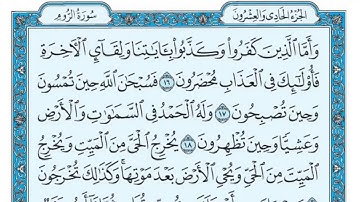 الجزء الحادي والعشرون سورة الروم
وَأَمَّا الَّذِينَ كَفَرُوا وَكَذَّبُوا بِـَٔايَـٰتِنَا وَلِقَآئِ الْـَٔاخِرَةِ
فَأُو۟لَـٰٓئِكَ فِي الْعَذَابِ مُحْضَرُونَ ١٦ فَسُبْحَـٰنَ اللَّهِ حِينَ تُمْسُونَ
وَحِينَ تُصْبِحُونَ ١٧ وَلَهُ الْحَمْدُ فِي السَّمَـٰوَٰتِ وَالْأَرْضِ
وَعَشِيًّا وَحِينَ تُظْهِرُونَ ١٨ يُخْرِجُ الْحَيَّ مِنَ الْمَيِّتِ وَيُخْرِجُ
الْمَيِّتَ مِنَ الْحَيِّ وَيُحْيِ الْأَرْضَ بَعْدَ مَوْتِهَا ۚ وَكَذَٰلِكَ تُخْرَجُونَ